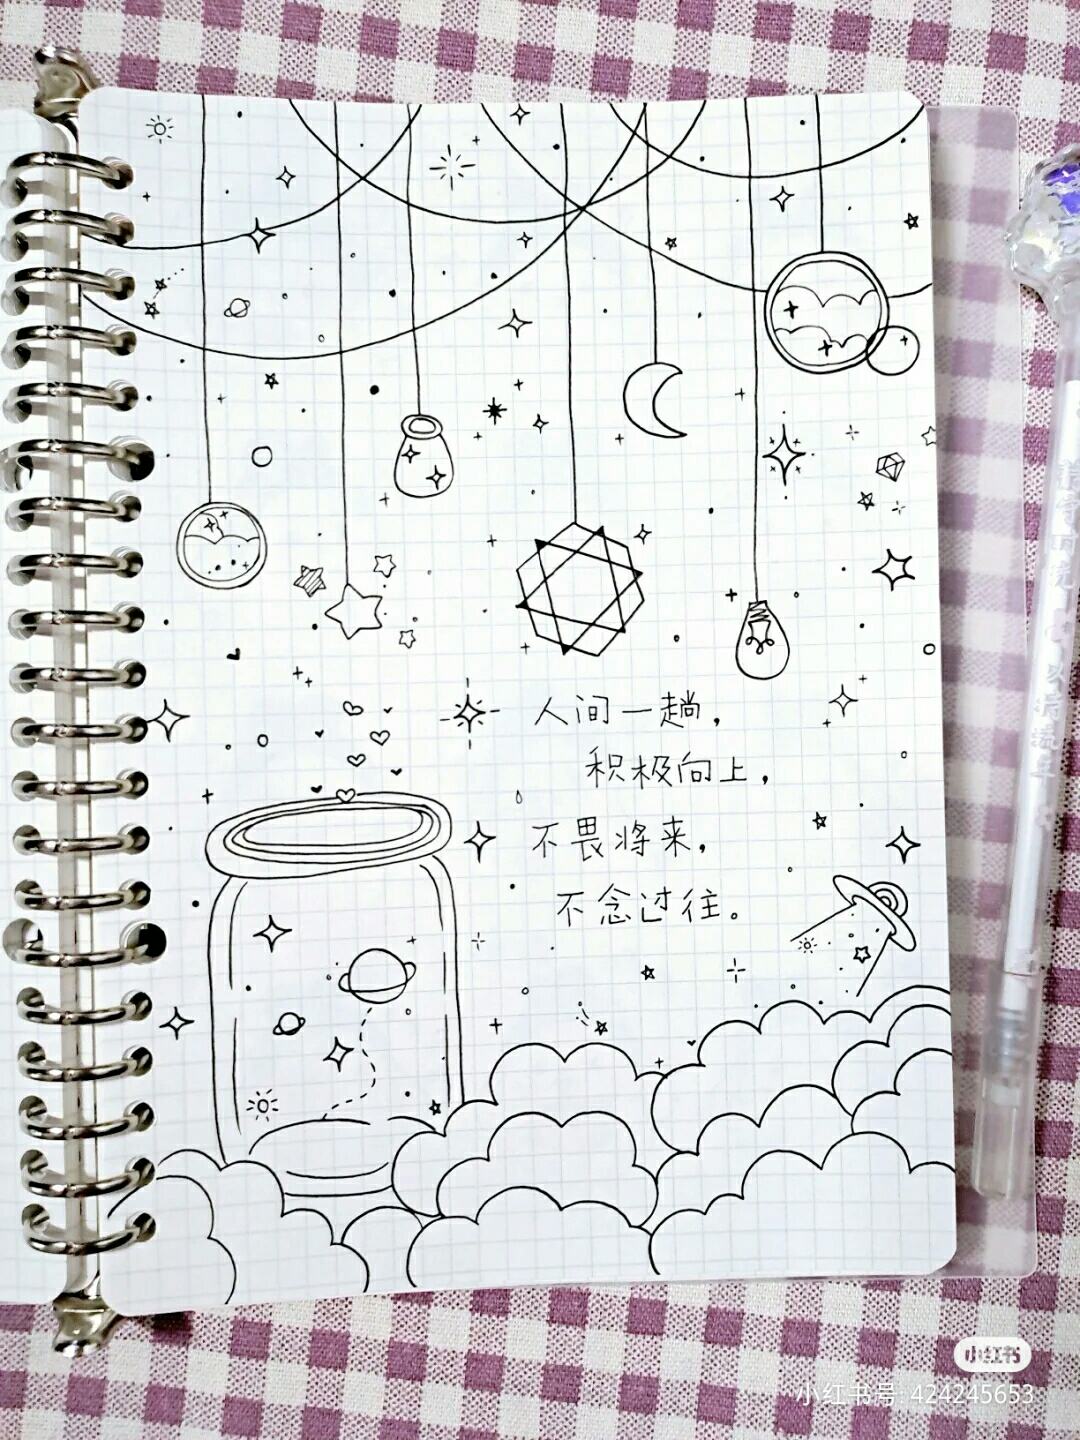 人间一趟，
积极向上，
不畏将来，
不念过往。
小红书
小红书号: 424245653